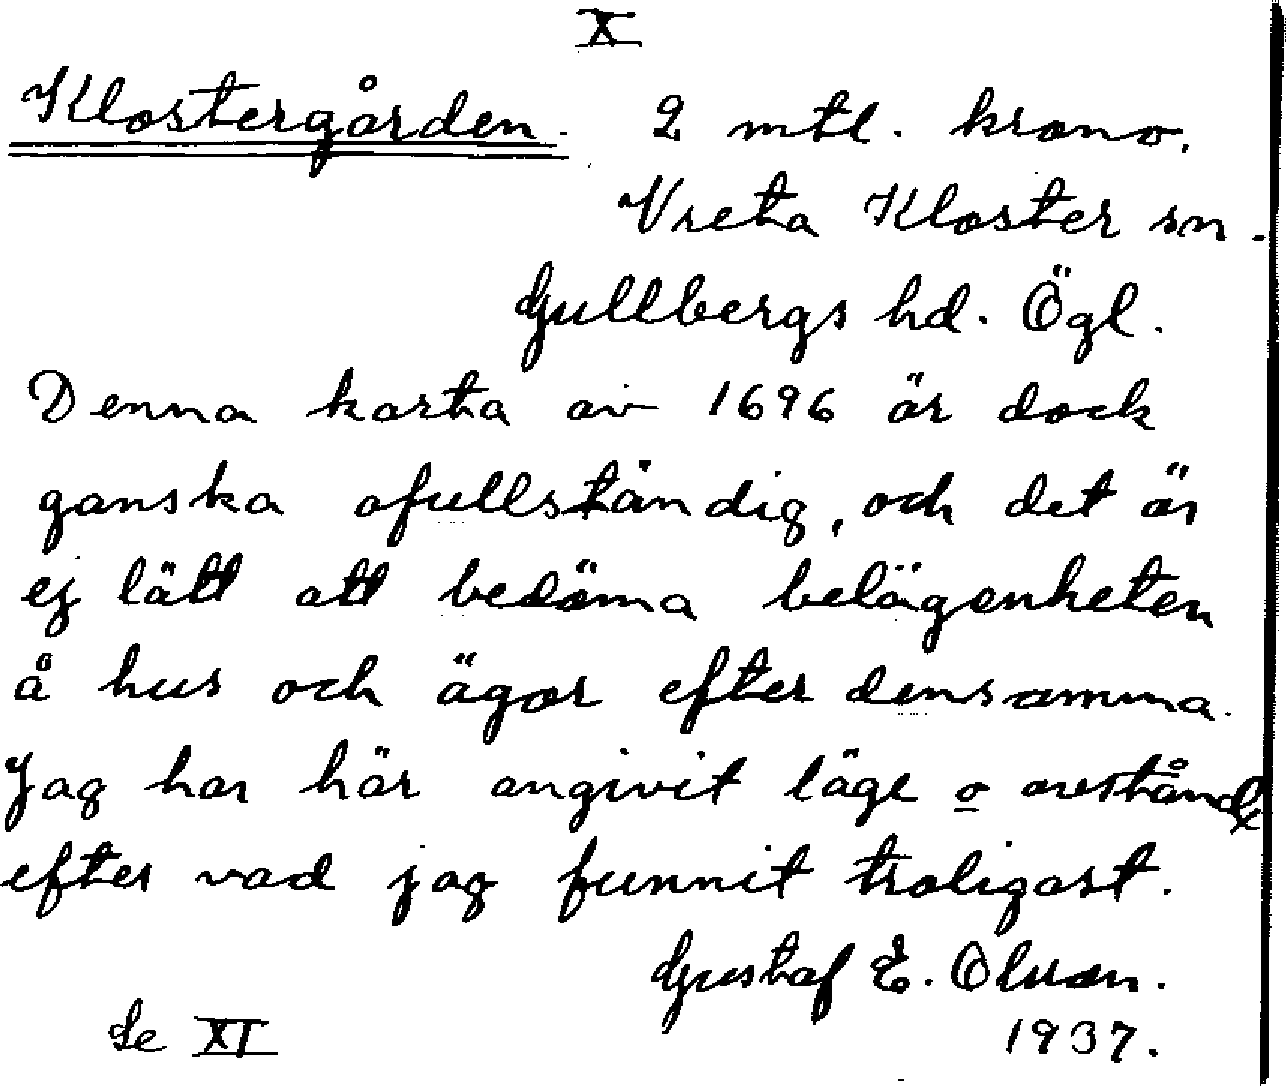 X
Klostergården. 2 mtl. krono.
Vreta Kloster sn.
Gullbergs hd. Ögl.
Denna karta av 1696 är dock
ganska ofullständig, och det är
ej lätt att bedöma belägenheten
å hus och ägor efter densamma.
Jag har här angivit läge o avstånd
efter vad jag funnit troligast.
Gustaf E. Olsson.
Se XI 1937.